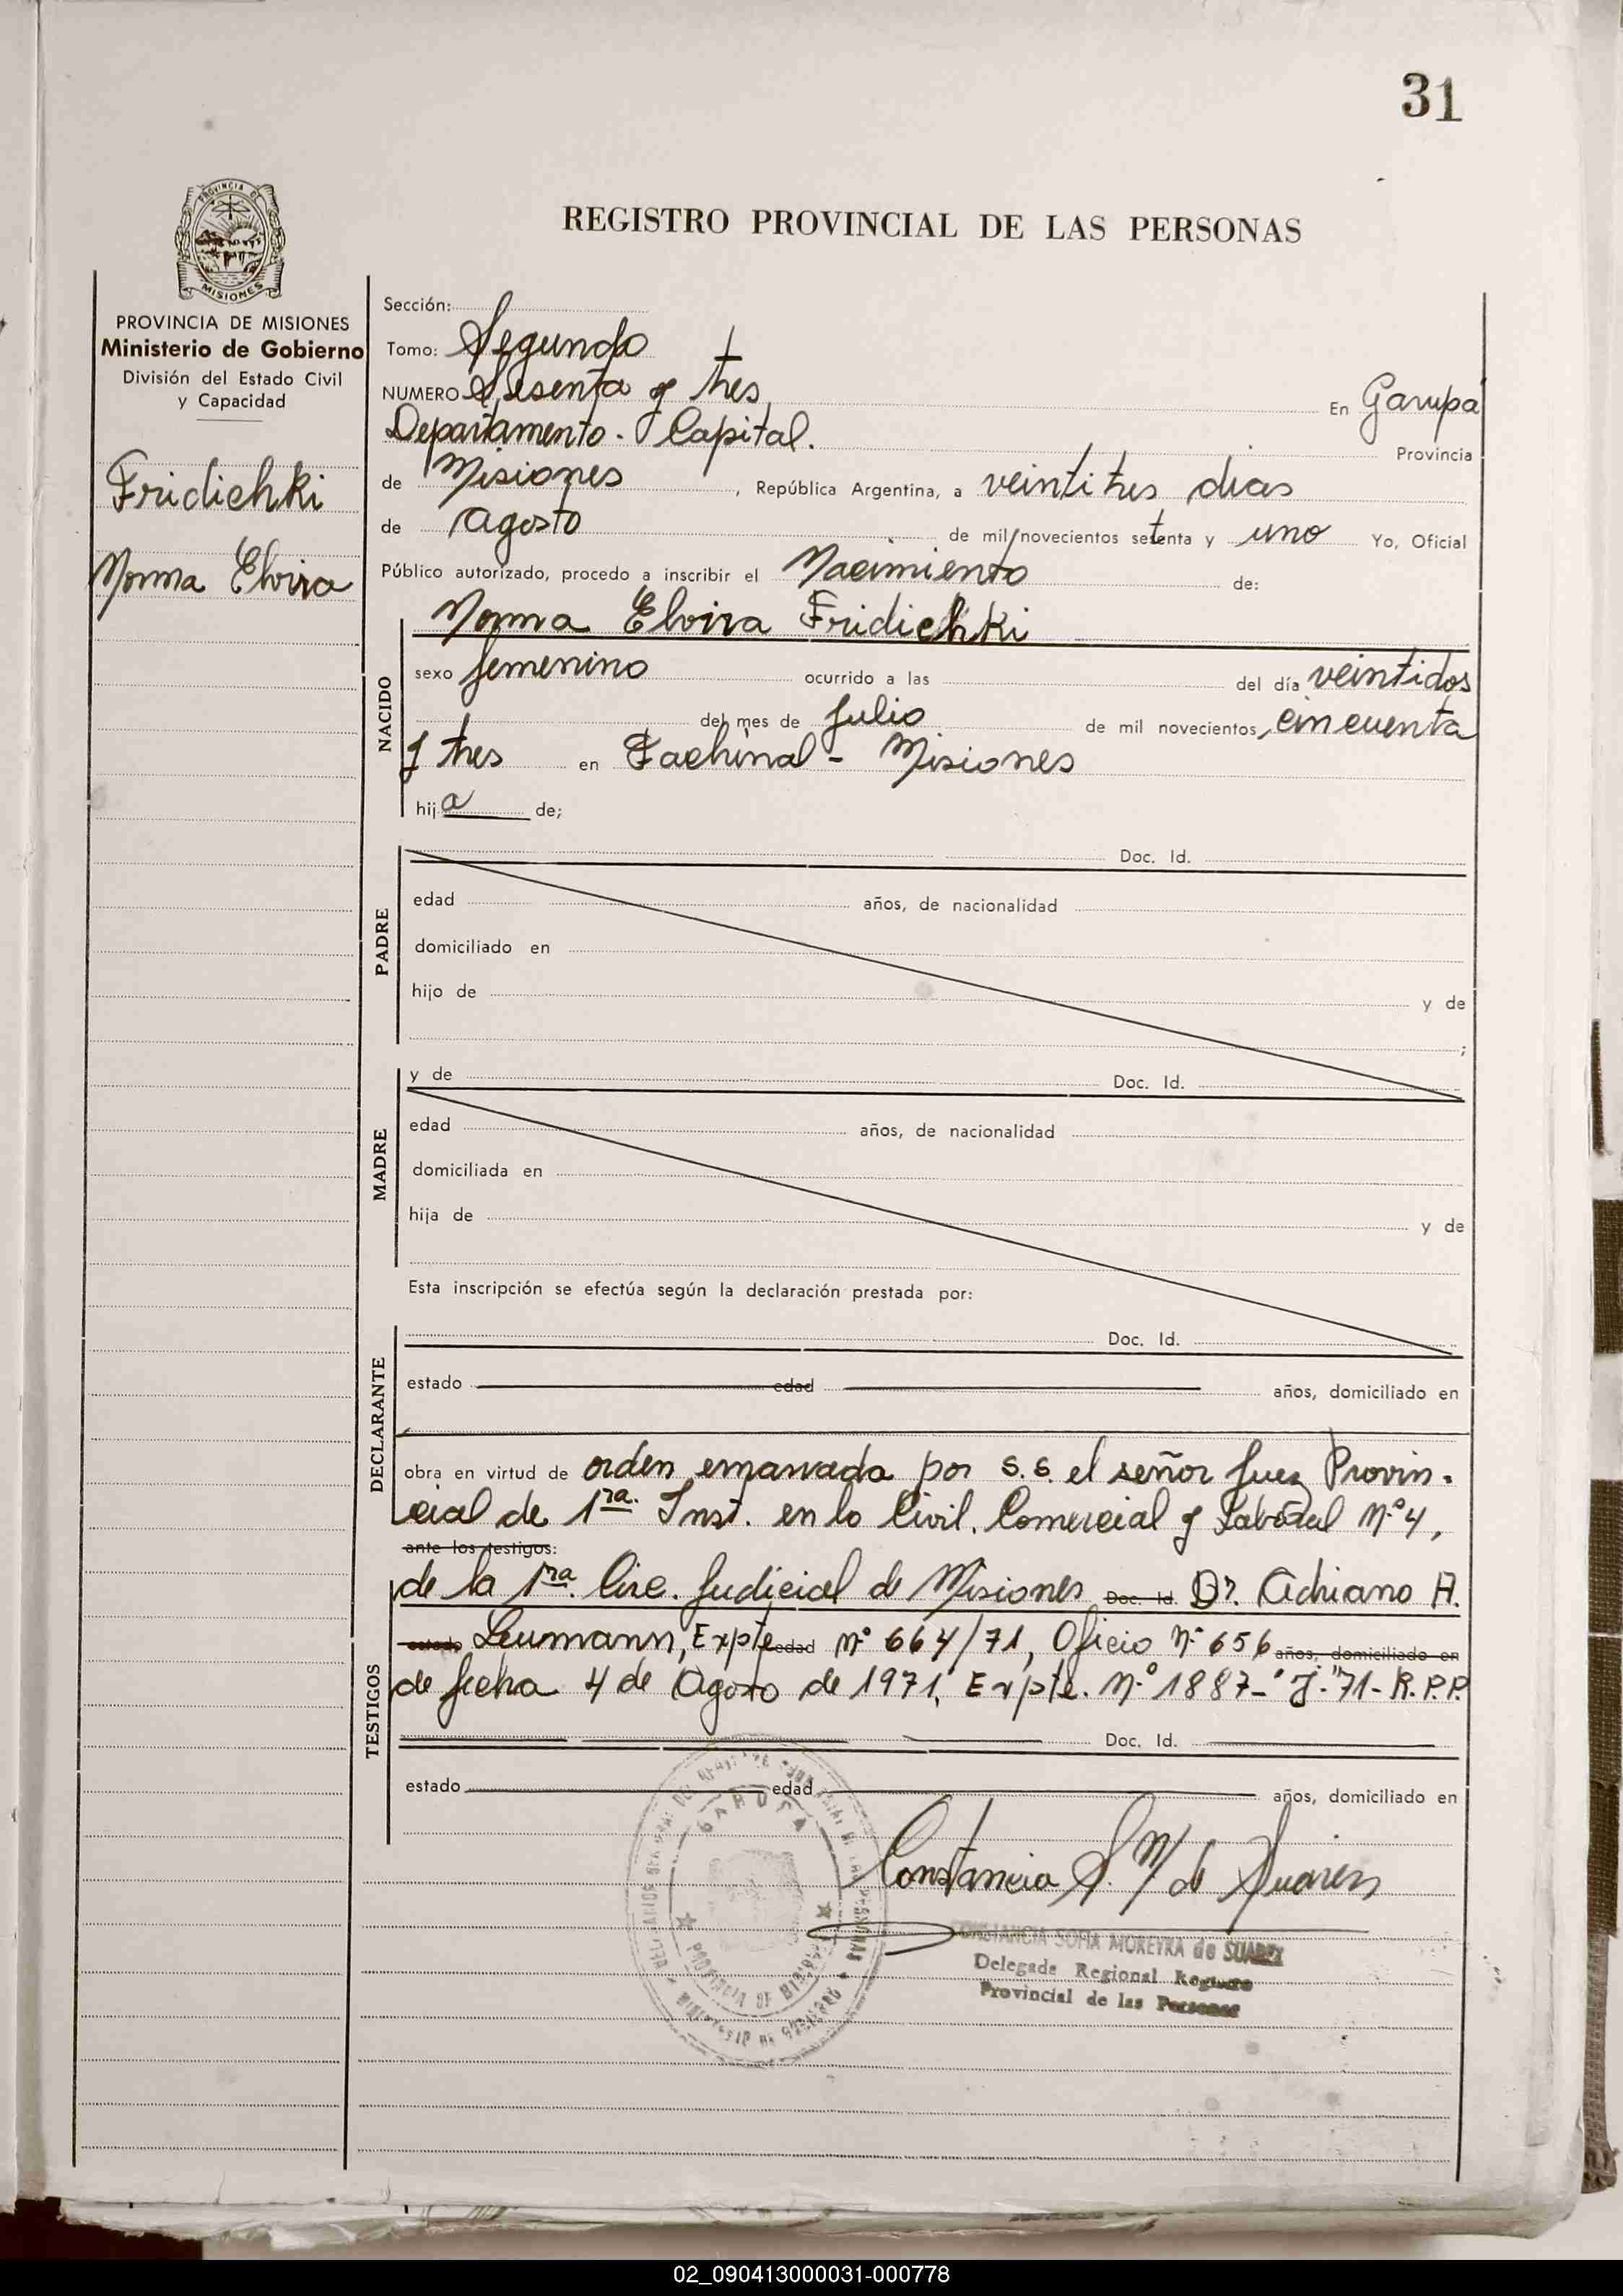 31
PROVINCIA DE
MISIONES
REGISTRO PROVINCIAL DE LAS PERSONAS
PROVINCIA DE MISIONES
Ministerio de Gobierno
División del Estado Civil
y Capacidad
Fridichki
Norma Elvira
Sección:
Tomo: Segundo
NUMERO Sesenta y tres En Garupá
Departamento - Capital. Provincia
de Misiones, República Argentina, a veintitres dias
de agosto de mil novecientos setenta y uno Yo, Oficial
Público autorizado, procedo a inscribir el Nacimiento de:
NACIDO
Norma Elvira Fridichki
sexo femenino ocurrido a las del día veintidos
del mes de julio de mil novecientos, cincuenta
y tres en Fachinal - Misiones
hija de;
PADRE
Doc. Id.
edad años, de nacionalidad
domiciliado en
hijo de y de
;
MADRE
y de Doc. Id.
edad años, de nacionalidad
domiciliada en
hija de y de
Esta inscripción se efectúa según la declaración prestada por:
DECLARANTE
Doc. Id.
estado edad años, domiciliado en
obra en virtud de orden emanada por S.S. el señor Juez Provin-
cial de 1ra. Inst. en lo Civil. Comercial y Laboral Nº 4,
ante los testigos:
TESTIGOS
de la 1ra. Circ. Judicial de Misiones Doc. Id. Dr. Adriano A.
estado Leumann, Expte edad Nº 664/71, Oficio Nº 656 años, domiciliado en
de fecha 4 de Agosto de 1971, Expte. Nº 1887-"J"-71-R.P.P.
Doc. Id.
estado edad años, domiciliado en
GARUPA
PROVINCIA DE MISIONES
MINISTERIO DE GOBIERNO
Constancia S. M. de Suarez
CONSTANCIA SOFIA MOREYRA de SUAREZ
Delegada Regional Registro
Provincial de las Personas
02_090413000031-000778